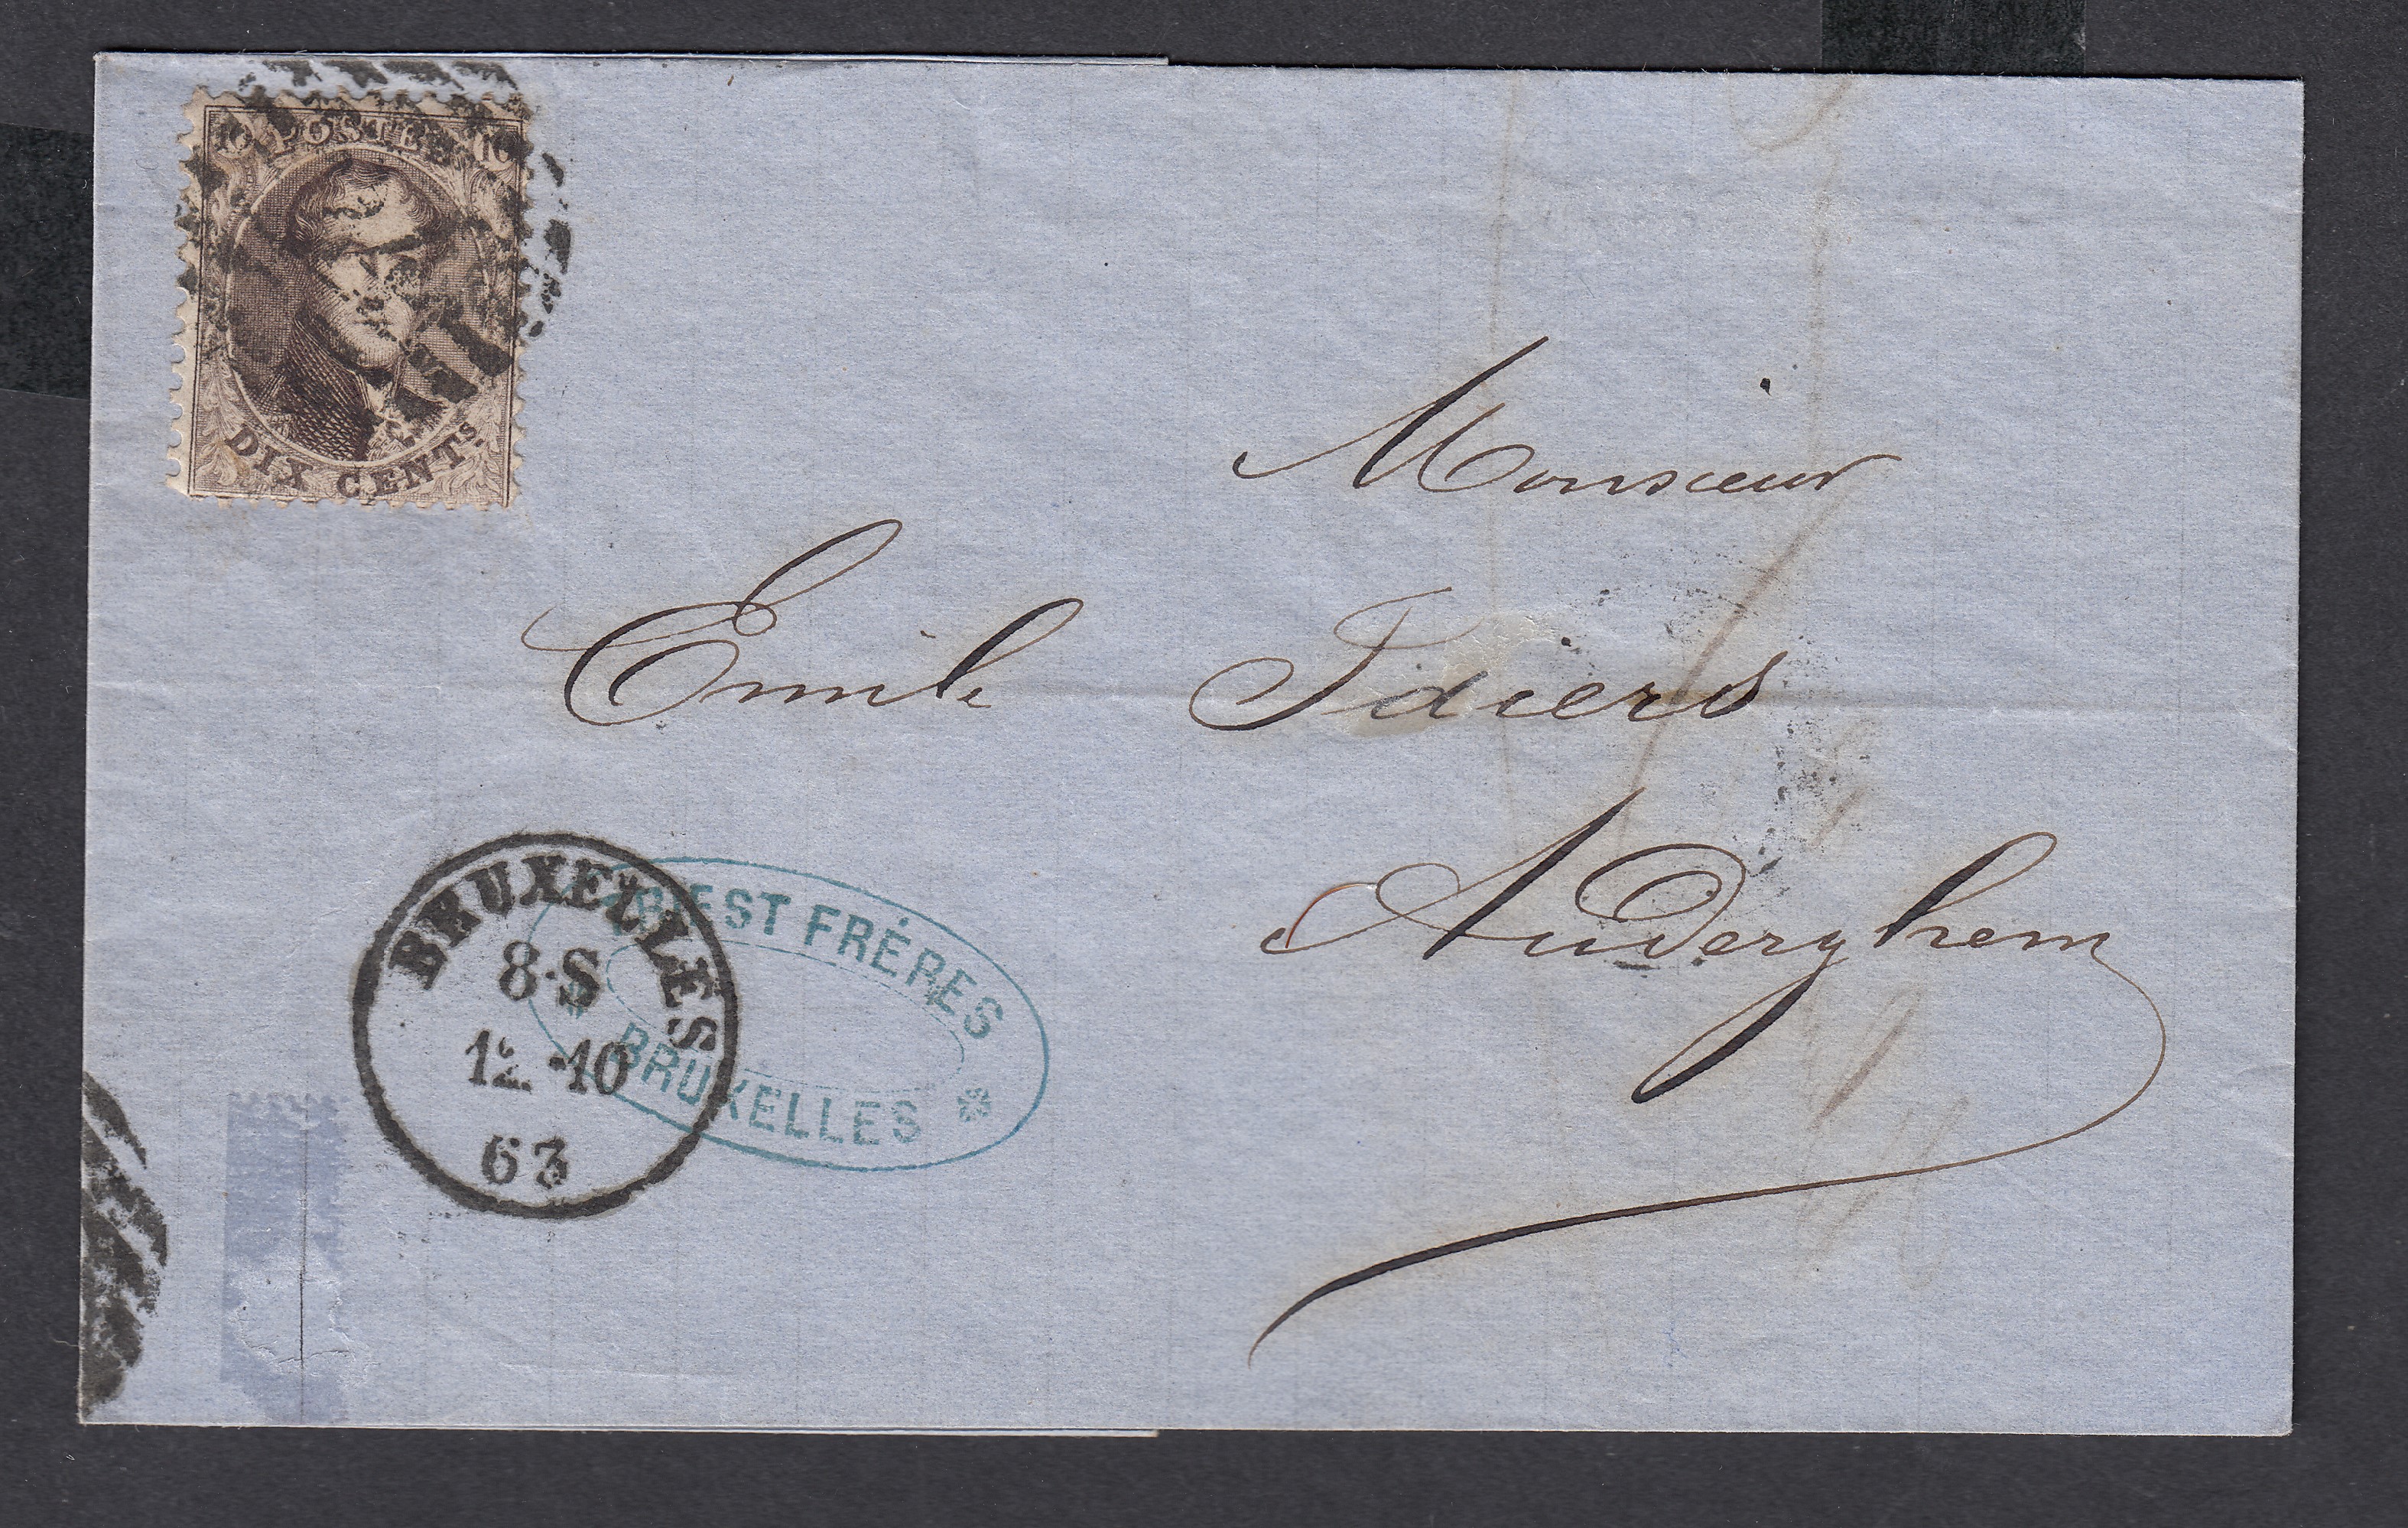 10 POSTES 10
DIX CENTS.
Monsieur
Emile Idiers
Auderghem
BRUXELLES
8·S
12 -10
63
FRÈRES
BRUXELLES